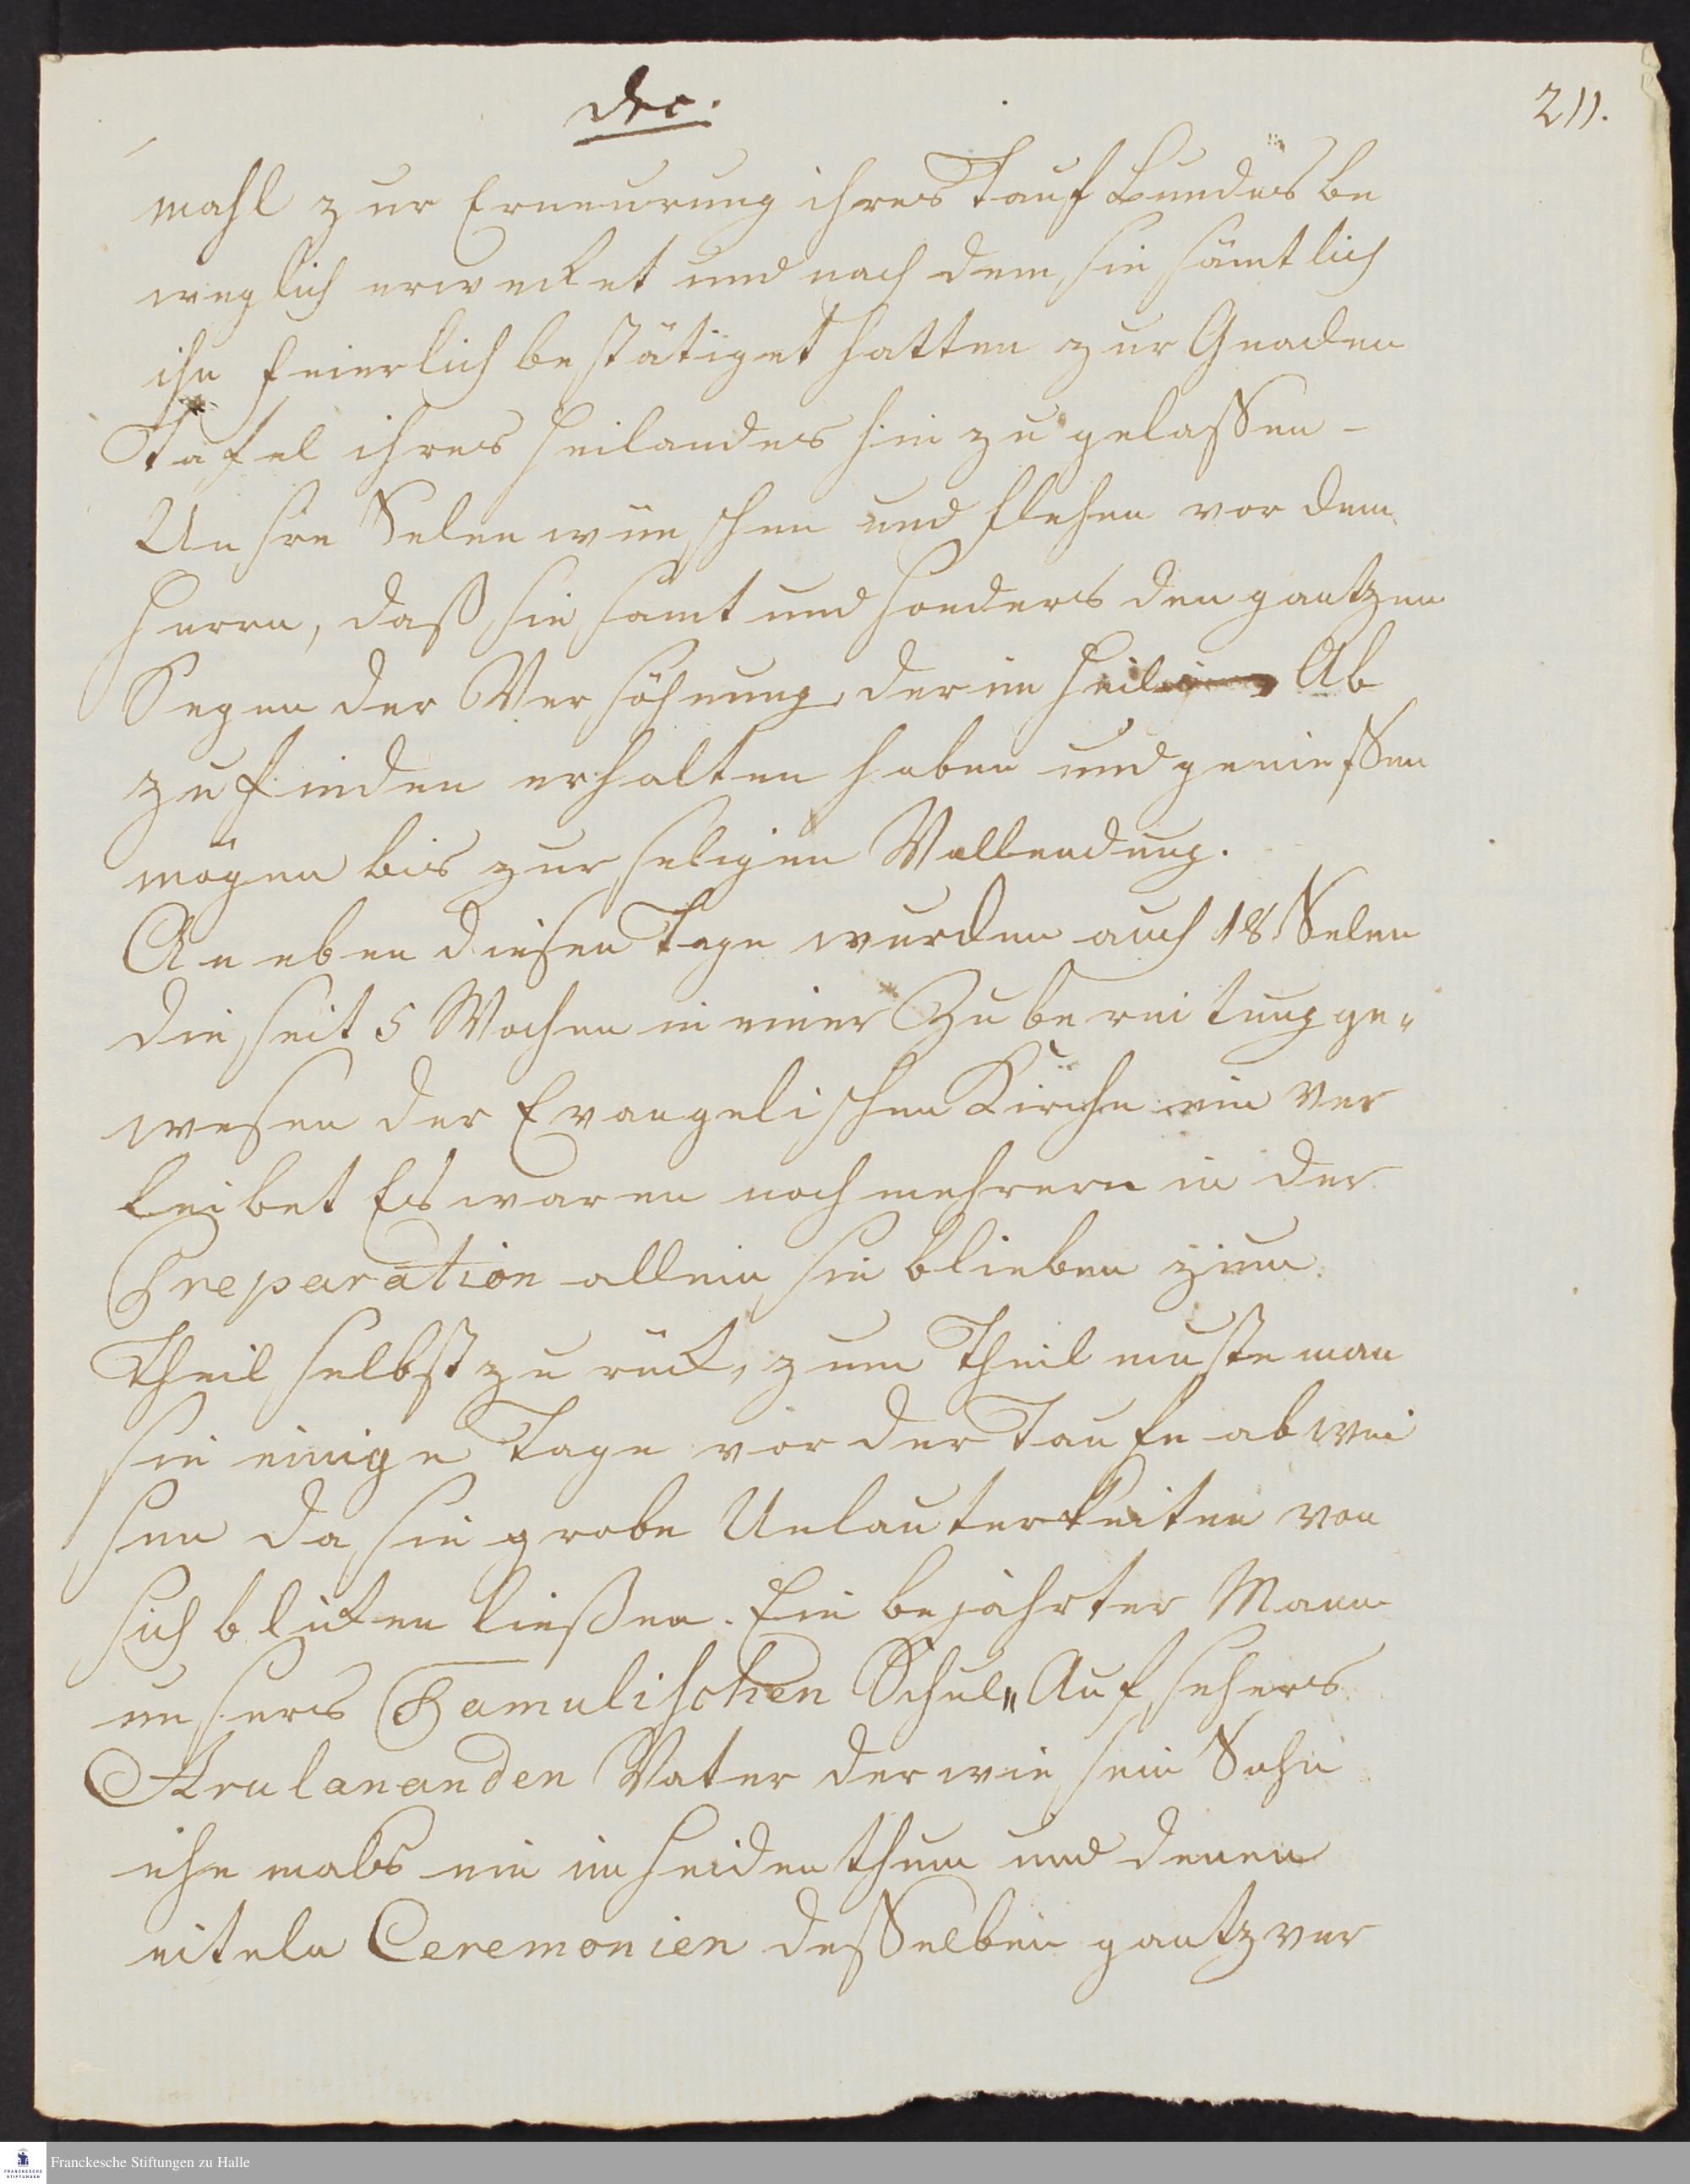 Dec.
211.
mahl zur Erneurung ihres Tauf Bundes be
weglich erwecket und nach dem sie sämtlich
ihn feierlich bestätiget hatten zur Gnaden
Tafel ihres Heilandes hin zu gelassen -
Unsre Selen wünschen und flehen vor dem
Herrn, daß sie samt und sonders den gantzen
Segen der Versöhnung, der im Heilig Ab
zu finden erhalten haben und geniessen
mögen bis zur seligen Vollendung.
An eben diesen Tage wurden auch 18 Selen
die seit 5 Wochen in einer Zubereitung ge"
wesen der Evangelischen Kirche ein ver
leibet Es waren noch mehrere in der
Preparation allein sie blieben zum
Theil selbst zu rück, zum Theil muste man
sie einige Tage vor der Taufe ab wei
sen da sie grobe Unlauterkeiten von
sich blicken ließen. Ein bejahrter Mann
unsers Tamulischen Schul" Aufsehers
Arulananden Vater der wie sein Sohn
ehe mals ein im Heidenthum und denen
eiteln Ceremonien desselben gantz ver
Franckesche Stiftungen zu Halle
FRANCKESCHE
STIFTUNGEN